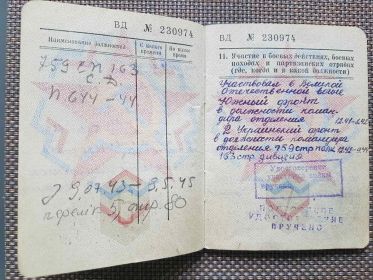 ВД № 230974
Наименование должности
С какого времени
По какое время
759 СП 163
С.Д.
П 644-44
9,07.43 - 9,5.45
ВД № 230974
11. Участие в боевых действиях, боевых
походах и партизанских отрядах
(где, когда и в какой должности)
Участвовал в Великой
Отечественной войне
Южный фронт
в должности коман-
дира отделения
2 Украинский фронт
в должности командира
отделения 759 стр полка
163 стр. дивизия
Удостоверение
войны
вручено
УДОСТОВЕРЕНИЕ
ВРУЧЕНО